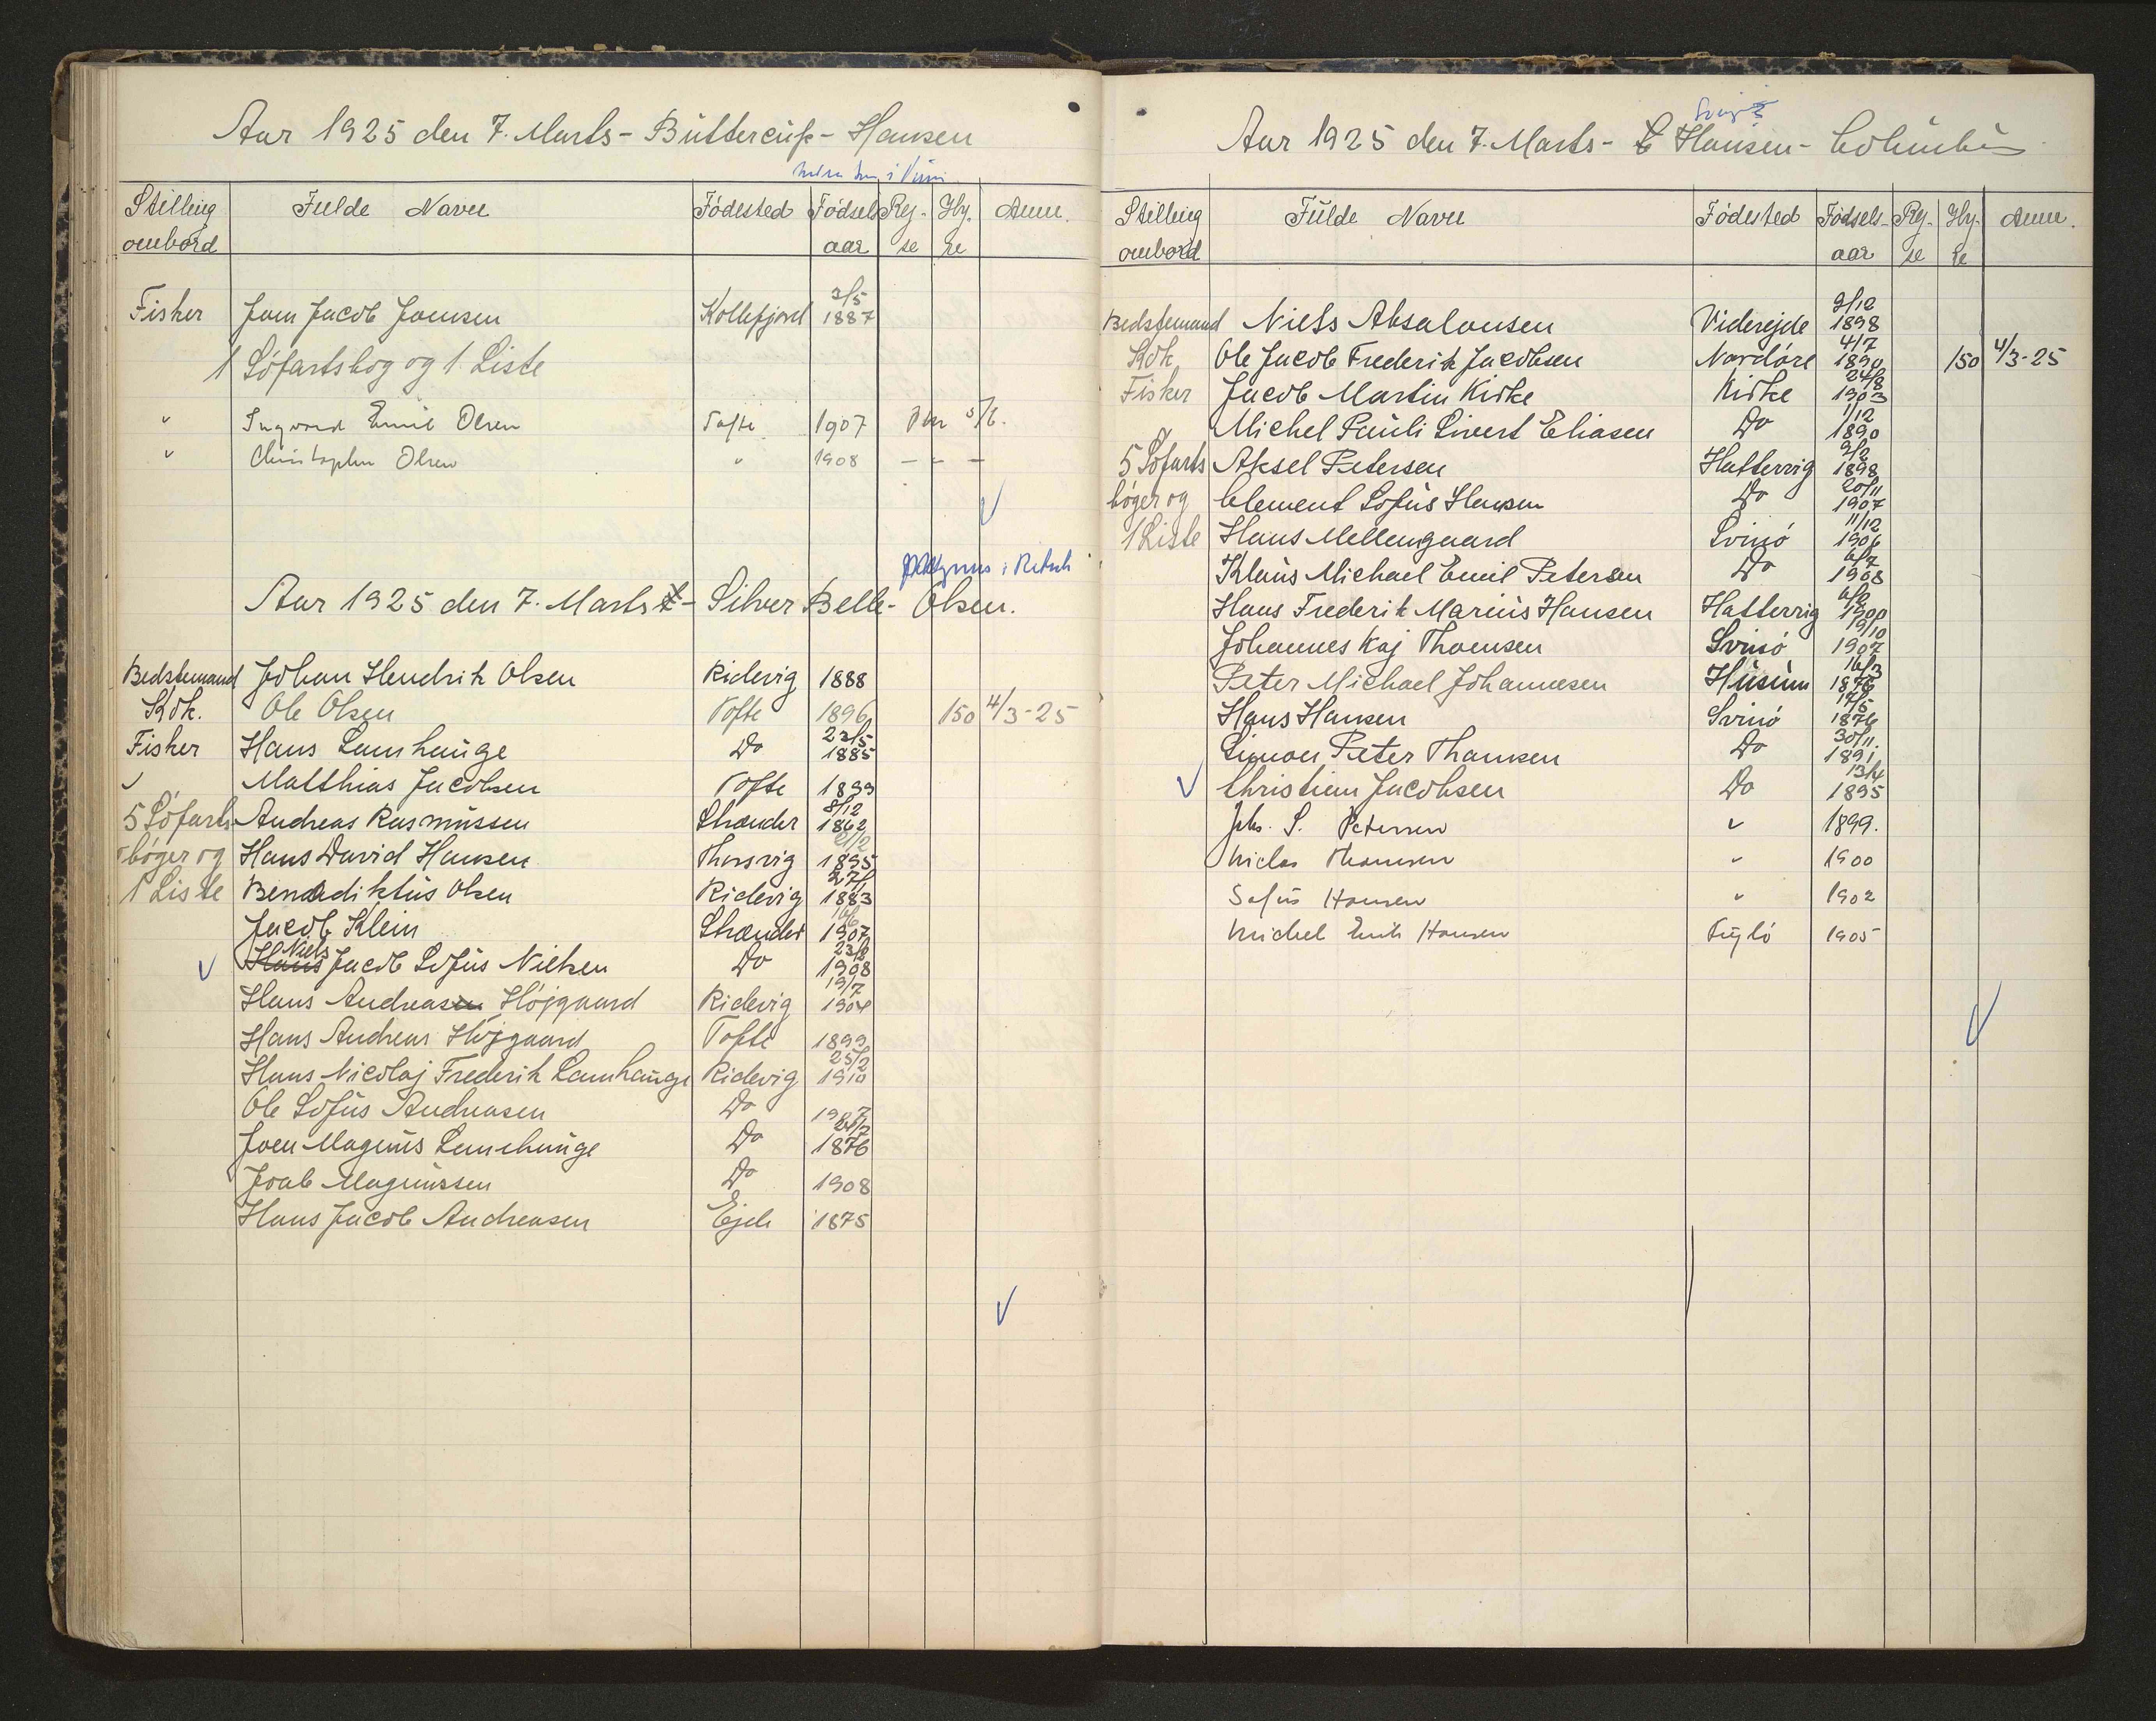 Aar 1925 den 7. Marts - Buttercup - Hansen
Stilling ombord Fulde Navn Födested Födsels aar Rej-se Hy-re Anm.
Fisher Joen Jacob Joensen Kollefjord 2/5 1887
1 Söfartsbog og 1 Liste
" Ingvard Emil Olsen Tofte 1907
" Christopher Olsen " 1908 - - -
Aar 1925 den 7. Marts - Silver Belle - Olsen.
Bedstemand Johan Hendrik Olsen Ridevig 1888
Kok. Ole Olsen Tofte 1896 150 4/3-25
Fisher Hans Lamhauge Do 23/5 1885
" Matthias Jacobsen Tofte 1899
5 Söfarts- Andreas Rasmussen Strænder 8/12 1862
böger og Hans David Hansen Thorsvig 2/2 1895
1 Liste Benadiktus Olsen Ridevig 27/1 1883
Jacob Klein Strænder 16/6 1907
Hans Niels Jacob Sofus Nielsen Do 23/8 1908
Hans Andreasen Höjgaard Ridevig 19/7 1904
Hans Andreas Höjgaard Tofte 1899
Hans Nicolaj Frederik Lamhauge Ridevig 25/2 1910
Ole Sofus Andreasen Do 1907
Joen Magnus Lamhauge Do 24/2 1876
Joab Magnussen Do 1908
Hans Jacob Andreasen Ejde 1875
Aar 1925 den 7. Marts - Hansen - Columbus
Stilling ombord Fulde Navn Födested Födsels-aar Rej-se Hy-re Anm.
Bedstemand Niels Absalonsen Viderejde 2/12 1898
Kok Ole Jacob Frederik Jacobsen Nordöre 4/7 1890 150 4/3-25
Fisher Jacob Martin Kirke Kirke 24/8 1903
Michel Pauli Sivert Eliasen Do 1/12 1890
5 Söfarts Aksel Petersen Hattervig 2/2 1898
böger og Clement Sofus Hansen Do 20/11 1907
1 Liste Hans Mellemgaard Svinö 11/12 1906
Klaus Michael Emil Petersen Do 6/7 1908
Hans Frederik Marius Hansen Hattervig 6/2 1900
Johannes Kaj Thomsen Svinö 19/10 1907
Peter Michael Johannesen Husum 16/3 1876
Hans Hansen Svinö 17/5 1876
Simon Peter Thomsen Do 30/11. 1891
Christian Jacobsen Do 13/4 1895
Johs. S. Petersen " 1899.
Niclas Thomsen " 1900
Sofus Hansen " 1902
Michel Emil Hansen Fuglö 1905